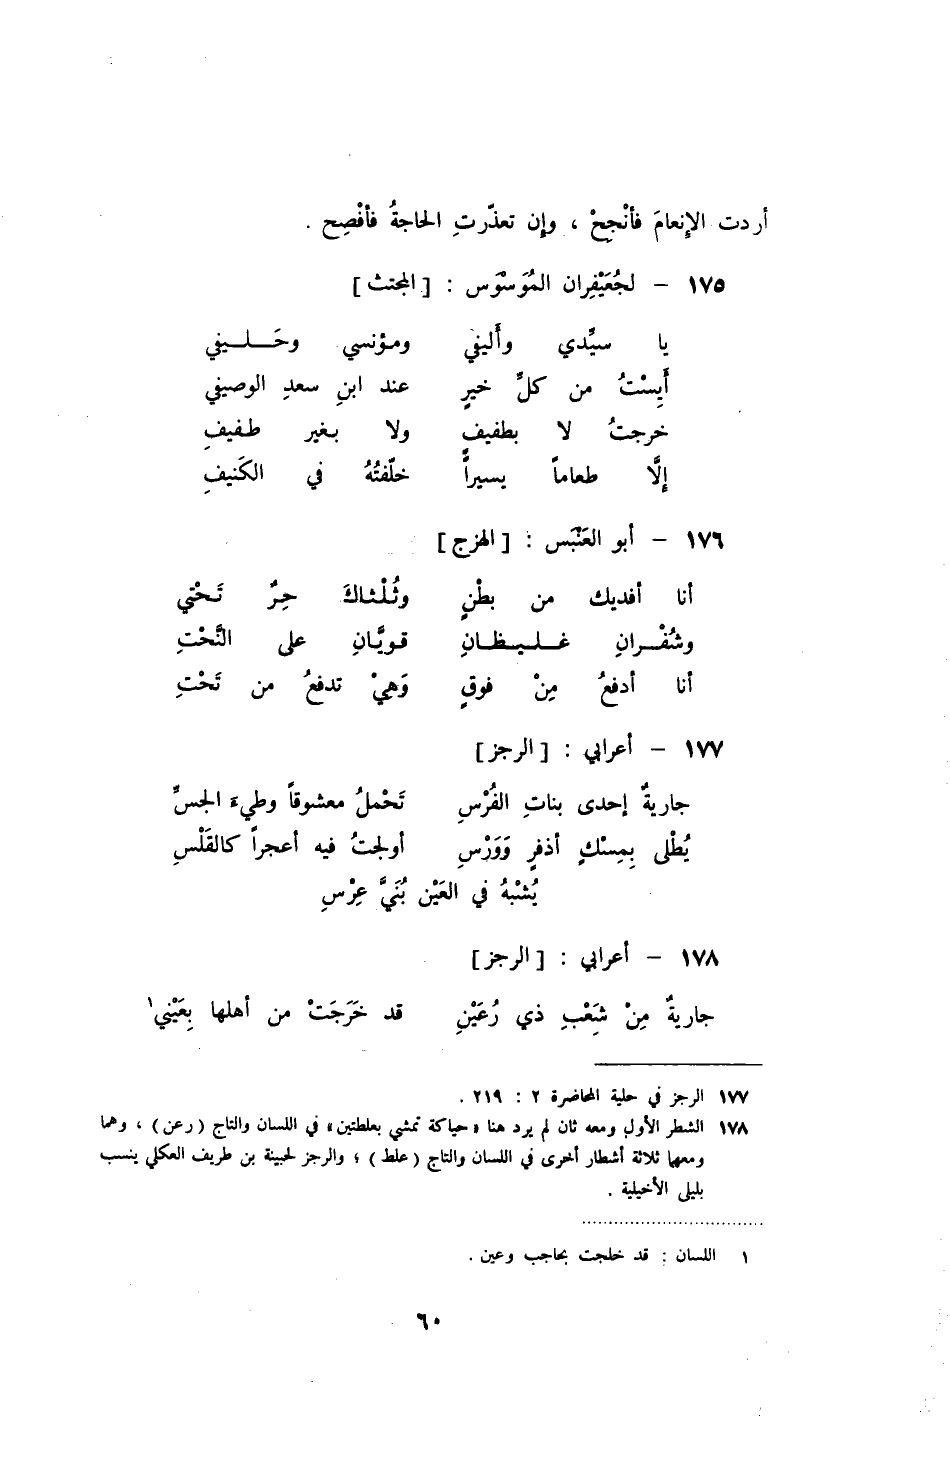 أردت الإنعامَ فأنْجِحْ ، وإن تعذّرتِ الحاجةُ فأفْصِح .
١٧٥ – لجُعَيْفِران المُوَسْوَس : [ المجتث ]
يا سيِّدي وأَليفي ومؤنسي وحَلـيفي
أَيِسْتُ من كلِّ خيرٍ عند ابنِ سعدٍ الوصيفي
خرجتُ لا بطفيفٍ ولا بغير طفيفِ
إلَّا طعاماً يسيراً خلّفتُهُ في الكَنيفِ
١٧٦ – أبو العَنْبَس : [ الهزج ]
أنا أفديك من بطْنٍ وثُلْثاكَ حِرٌ تَحْتي
وشُفْرانِ غليظانِ قويَّانِ على النَّحْتِ
أنا أدفعُ مِنْ فوقٍ وَهِيْ تدفعُ من تَحْتِ
١٧٧ – أعرابي : [ الرجز ]
جاريةٌ إحدى بناتِ الفُرْسِ تَحْملُ معشوقاً وطيءَ الجسِّ
يُطْلى بِمِسْكٍ أذفرٍ وَوَرْسِ أولجتُ فيه أعجراً كالقَلْسِ
يُشْبِهُ في العَيْن بُنَيَّ عِرْسِ
١٧٨ – أعرابي : [ الرجز ]
جاريةٌ مِنْ شِعْبِ ذي رُعَيْنِ قد خَرَجَتْ من أهلها بِعَيْني١
١٧٧ الرجز في حلية المحاضرة ٢ : ٢١٩ .
١٧٨ الشطر الأول ومعه ثان لم يرد هنا «حياكة تمشي بعلطتين» في اللسان والتاج (رعن) ، وهما
ومعهما ثلاثة أشطار أخرى في اللسان والتاج (علط) ؛ والرجز لحبينة بن طريف العكلي ينسب
بليلى الأخيلية .
١ اللسان : قد خلجت بحاجب وعين .
٦٠